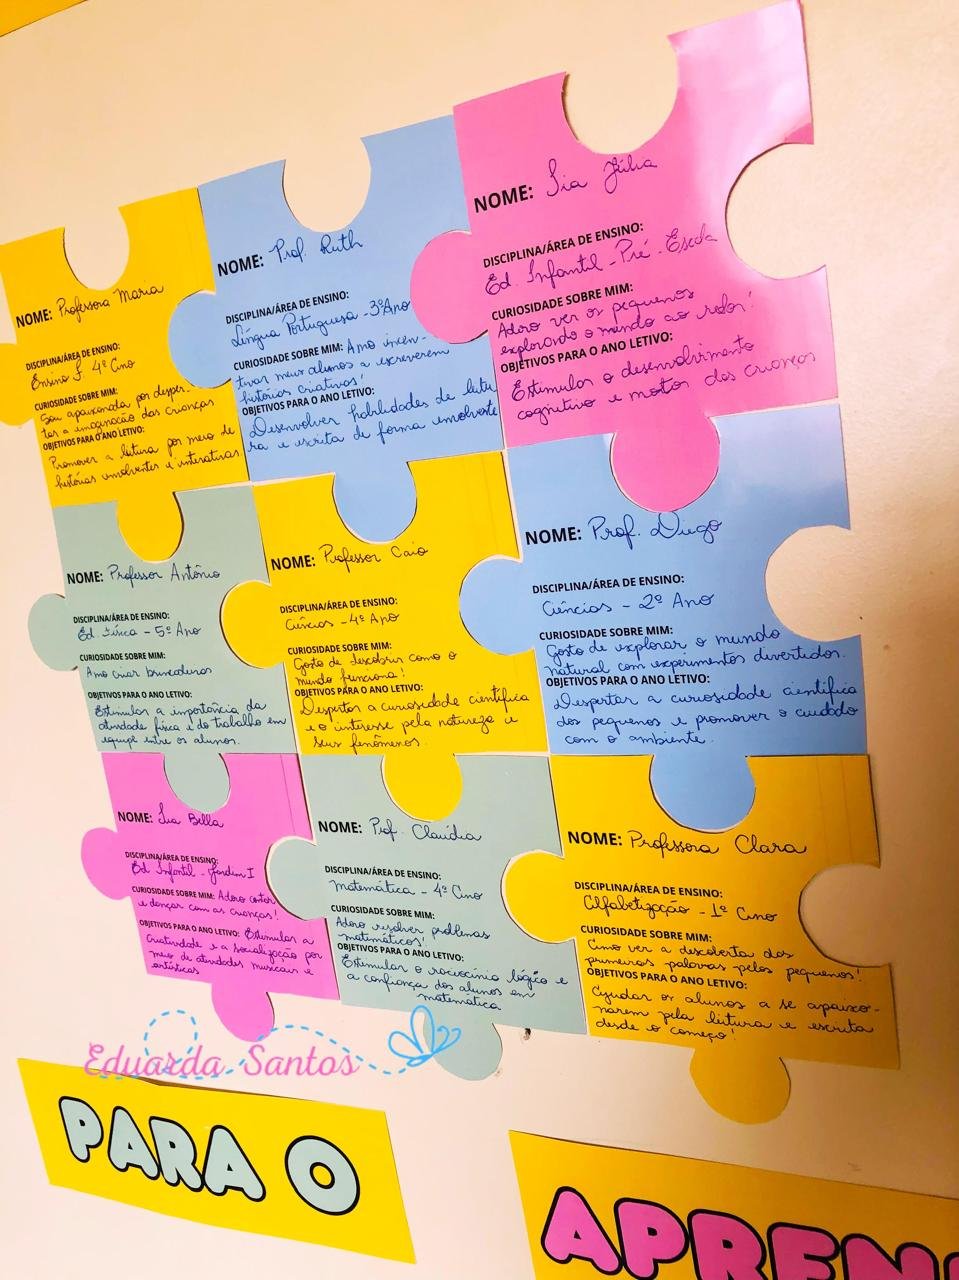 NOME: Professora Maria
DISCIPLINA/ÁREA DE ENSINO:
Ensino f. 4º Ano
CURIOSIDADE SOBRE MIM:
Sou apaixonada por desper-
tar a imaginação das crianças
OBJETIVOS PARA O ANO LETIVO:
Promover a leitura por meio de
histórias envolventes e interativas
NOME: Prof. Ruth
DISCIPLINA/ÁREA DE ENSINO:
Língua Portuguesa - 3º Ano
CURIOSIDADE SOBRE MIM: Amo incen-
tivar meus alunos a escreverem
histórias criativas!
OBJETIVOS PARA O ANO LETIVO:
Desenvolver habilidades de leitu
ra e escrita de forma envolvente
NOME: Tia Júlia
DISCIPLINA/ÁREA DE ENSINO:
Ed. Infantil - Pré. Escola
CURIOSIDADE SOBRE MIM:
Adoro ver os pequenos
explorando o mundo ao redor!
OBJETIVOS PARA O ANO LETIVO:
Estimular o desenvolvimento
cognitivo e motor das crianças
NOME: Professor Antônio
DISCIPLINA/ÁREA DE ENSINO:
Ed. Física - 5º Ano
CURIOSIDADE SOBRE MIM:
Amo criar brincadeiras
OBJETIVOS PARA O ANO LETIVO:
Estimular a importância da
atividade física e do trabalho em
equipe entre os alunos.
NOME: Professor Caio
DISCIPLINA/ÁREA DE ENSINO:
Ciências - 4º Ano
CURIOSIDADE SOBRE MIM:
Gosto de descobrir como o
mundo funciona!
OBJETIVOS PARA O ANO LETIVO:
Despertar a curiosidade científica
e o interesse pela natureza e
seus fenômenos.
NOME: Prof. Diego
DISCIPLINA/ÁREA DE ENSINO:
Ciências - 2º Ano
CURIOSIDADE SOBRE MIM:
Gosto de explorar o mundo
natural com experimentos divertidos.
OBJETIVOS PARA O ANO LETIVO:
Despertar a curiosidade científica
dos pequenos e promover o cuidado
com o ambiente.
NOME: Tia Bella
DISCIPLINA/ÁREA DE ENSINO:
Ed Infantil - Jardim I
CURIOSIDADE SOBRE MIM: Adoro cantar
e dançar com as crianças!
OBJETIVOS PARA O ANO LETIVO: Estimular a
criatividade e a socialização por
meio de atividades musicais e
artísticas
NOME: Prof. Claudia
DISCIPLINA/ÁREA DE ENSINO:
Matemática - 4º Ano
CURIOSIDADE SOBRE MIM:
Adoro resolver problemas
matemáticos!
OBJETIVOS PARA O ANO LETIVO:
Estimular o raciocínio lógico e
a confiança dos alunos em
matemática
NOME: Professora Clara
DISCIPLINA/ÁREA DE ENSINO:
Alfabetização - 1º Ano
CURIOSIDADE SOBRE MIM:
Amo ver a descoberta das
primeiras palavras pelos pequenos!
OBJETIVOS PARA O ANO LETIVO:
Ajudar os alunos a se apaixo-
narem pela leitura e escrita
desde o começo!
Eduarda Santos
PARA O
APREN